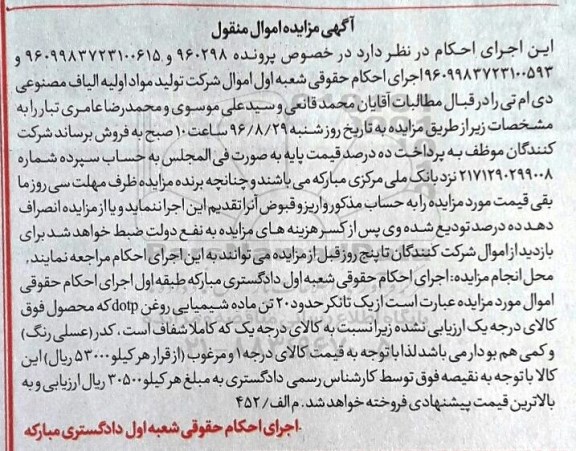 آگهی مزایده اموال منقول
این اجرای احکام در نظر دارد در خصوص پرونده ۹۶۰۲۹۸ و ۹۶۰۹۹۸۳۷۲۳۱۰۰۶۱۵ و
۹۶۰۹۹۸۳۷۲۳۱۰۰۵۹۳ اجرای احکام حقوقی شعبه اول اموال شرکت تولید مواد اولیه الیاف مصنوعی
دی ام تی را در قبال مطالبات آقایان محمد قانعی و سید علی موسوی و محمدرضا عامری تبار را به
مشخصات زیر از طریق مزایده به تاریخ روز شنبه ۹۶/۸/۲۹ ساعت ۱۰ صبح به فروش برساند شرکت
کنندگان موظف به پرداخت ده درصد قیمت پایه به صورت فی المجلس به حساب سپرده شماره
۲۱۷۱۲۹۰۲۹۹۰۰۸ نزد بانک ملی مرکزی مبارکه می باشند و چنانچه برنده مزایده ظرف مهلت سی روز ما
بقی قیمت مورد مزایده را به حساب مذکور واریز و قبوض آنرا تقدیم این اجرا ننماید و یا از مزایده انصراف
دهد ده درصد تودیع شده وی پس از کسر هزینه های مزایده به نفع دولت ضبط خواهد شد برای
بازدید از اموال شرکت کنندگان تا پنج روز قبل از مزایده می توانند به این اجرای احکام مراجعه نمایند.
محل انجام مزایده: اجرای احکام حقوقی شعبه اول دادگستری مبارکه طبقه اول اجرای احکام حقوقی
اموال مورد مزایده عبارت است از یک تانکر حدود ۲۰ تن ماده شیمیایی روغن dotp که محصول فوق
کالای درجه یک ارزیابی نشده زیرا نسبت به کالای درجه یک که کاملا شفاف است، کدر (عسلی رنگ)
و کمی هم بودار می باشد لذا با توجه به قیمت کالای درجه ۱ و مرغوب (از قرار هر کیلو ۵۳۰۰۰ ریال) این
کالا با توجه به نقیصه فوق توسط کارشناس رسمی دادگستری به مبلغ هر کیلو ۳۰۵۰۰ ریال ارزیابی و به
بالاترین قیمت پیشنهادی فروخته خواهد شد. م الف/ ۴۵۲
اجرای احکام حقوقی شعبه اول دادگستری مبارکه